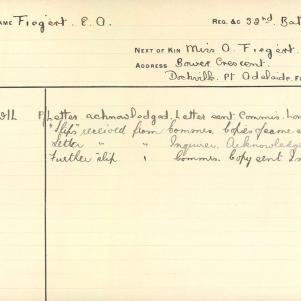 NAME Fiegert. E.O. REG. &c 32nd. Bat
NEXT OF KIN Miss O. Fiegert.
ADDRESS Bower Crescent.
Dockville. Pt Adelaide.
P Letter acknowledged. Letter sent Commis. Lon
"Slips" received from Commrs. Copies of same
Letter " " Inquirer. Acknowledge
Further "slip " Commrs. Copy sent In